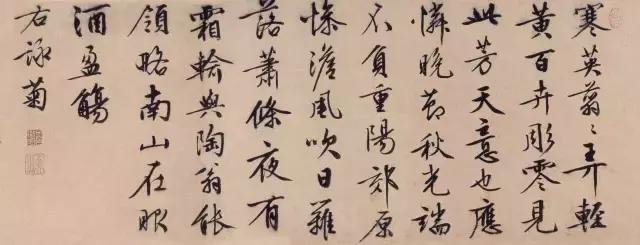 寒英翦〻弄輕
黄百卉彫零見
此芳天意也應
憐晚節秋光端
不負重陽郊原
慘澹風吹日籬
落蕭條夜有
霜輸與陶翁能
領略南山在眼
酒盈觴
右詠菊